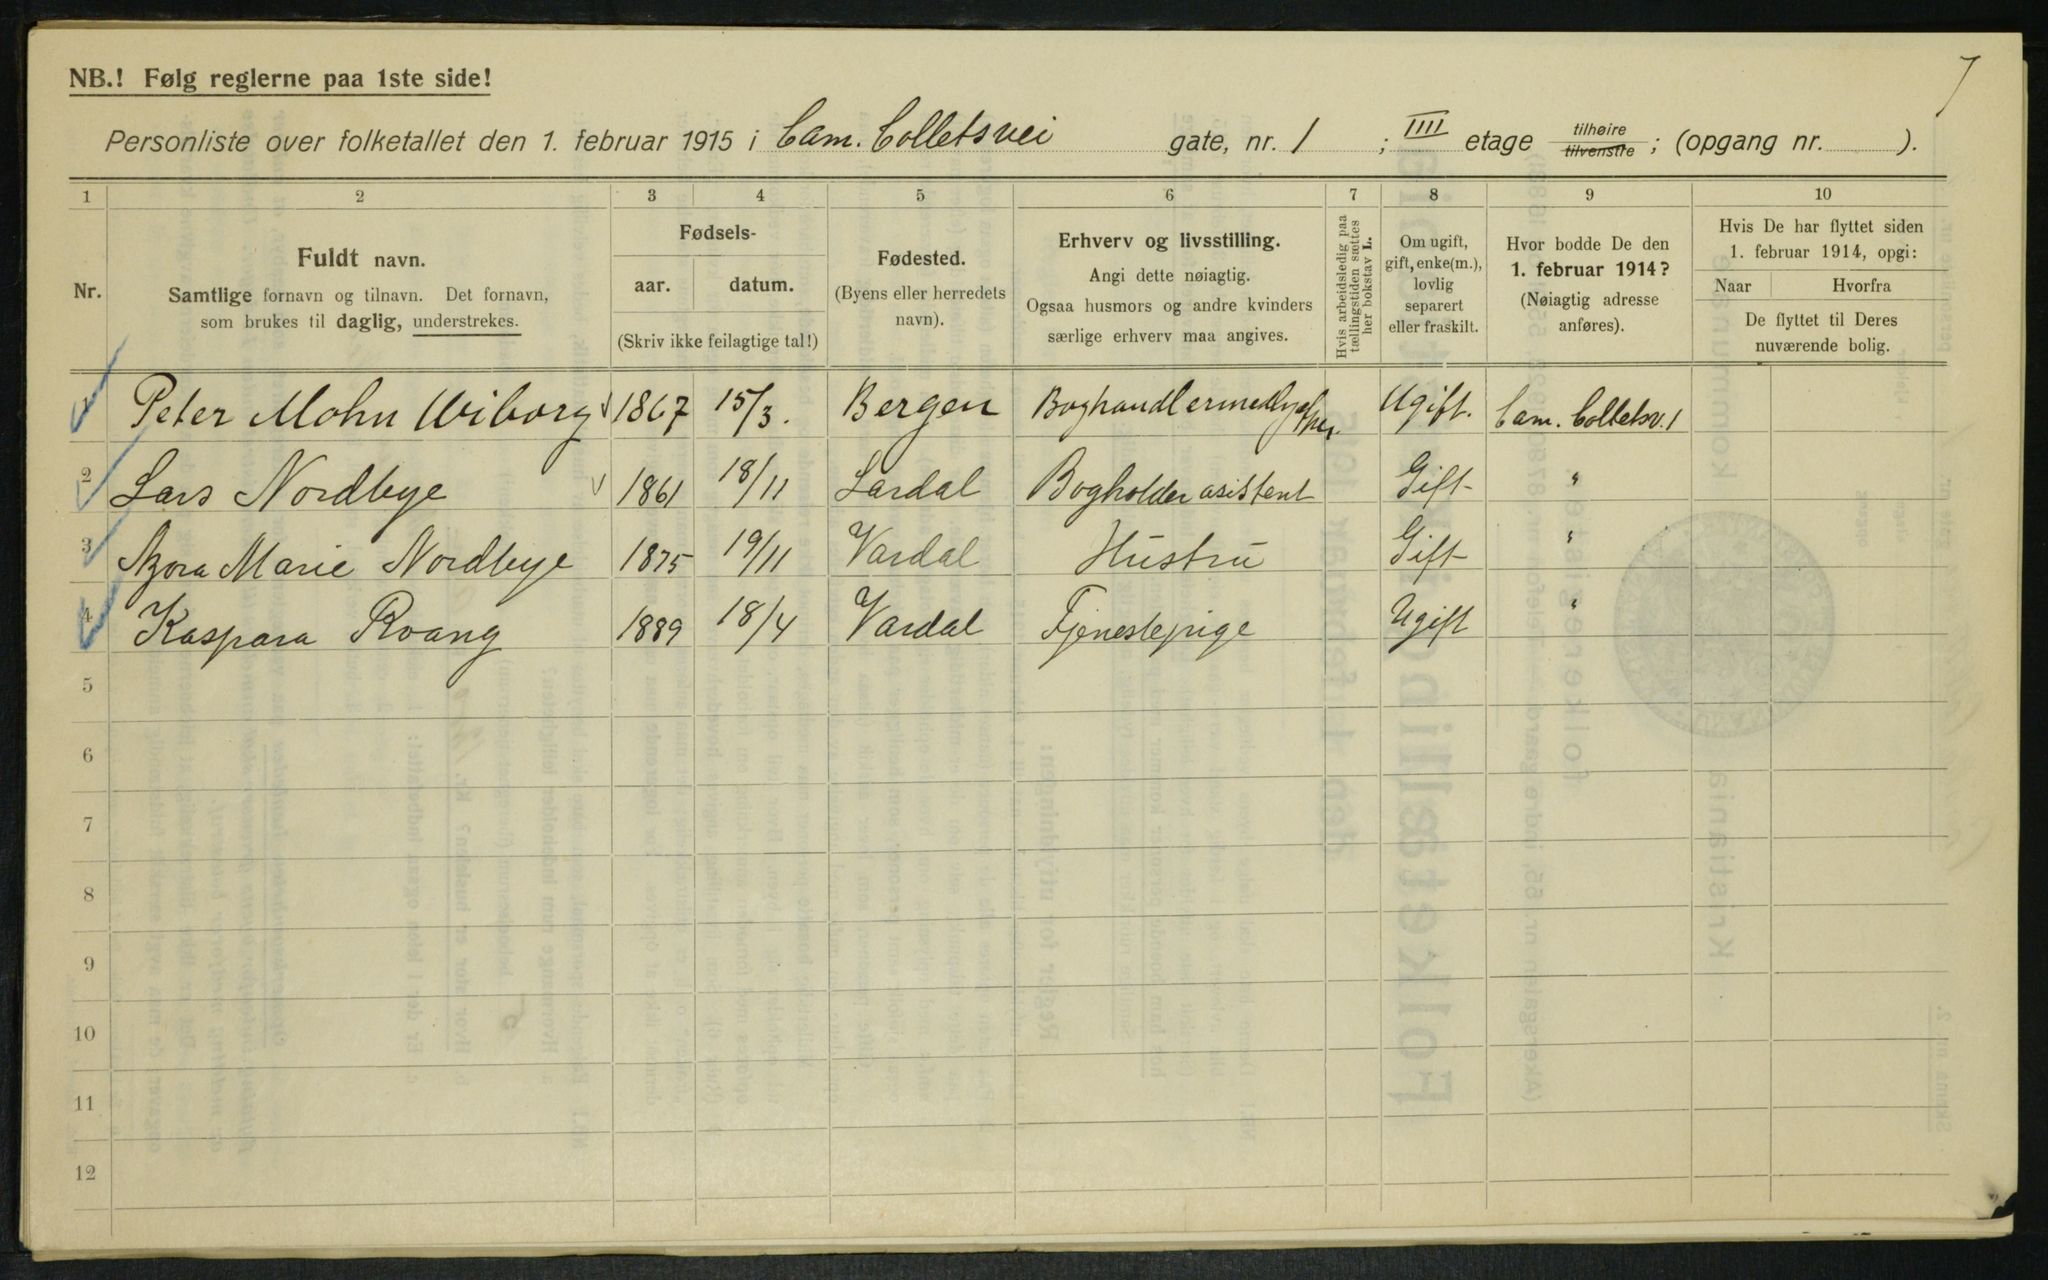 7
NB.! Følg reglerne paa 1ste side!
Personliste over folketallet den 1. februar 1915 i Cam. Colletsvei gate, nr. 1 ; IIII etage tilhøire tilvenstre ; (opgang nr. ).
1 2 3 4 5 6 7 8 9 10
Nr.
Fuldt navn.
Samtlige fornavn og tilnavn. Det fornavn,
som brukes til daglig, understrekes.
Fødsels-
aar. datum.
(Skriv ikke feilagtige tal!)
Fødested.
(Byens eller herredets
navn).
Erhverv og livsstilling.
Angi dette nøiagtig.
Ogsaa husmors og andre kvinders
særlige erhverv maa angives.
Hvis arbeidsledig paa
tællingstiden sættes
her bokstav L.
Om ugift,
gift, enke(m.),
lovlig
separert
eller fraskilt.
Hvor bodde De den
1. februar 1914?
(Nøiagtig adresse
anføres).
Hvis De har flyttet siden
1. februar 1914, opgi:
Naar Hvorfra
De flyttet til Deres
nuværende bolig.
1 Peter Mohn Wiborg 1867 15/3. Bergen Ugift. Cam. Colletsv. 1
2 Lars Nordbye 1861 18/11 Lardal Bogholder asistent Gift "
3 Marie Nordbye 1875 19/11 Vardal Hustru Gift "
4 Kaspara Roang 1889 18/4 Vardal Tjenestepige Ugift "
5
6
7
8
9
10
11
12